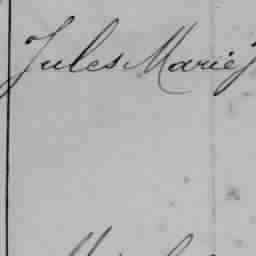 Jules Marie